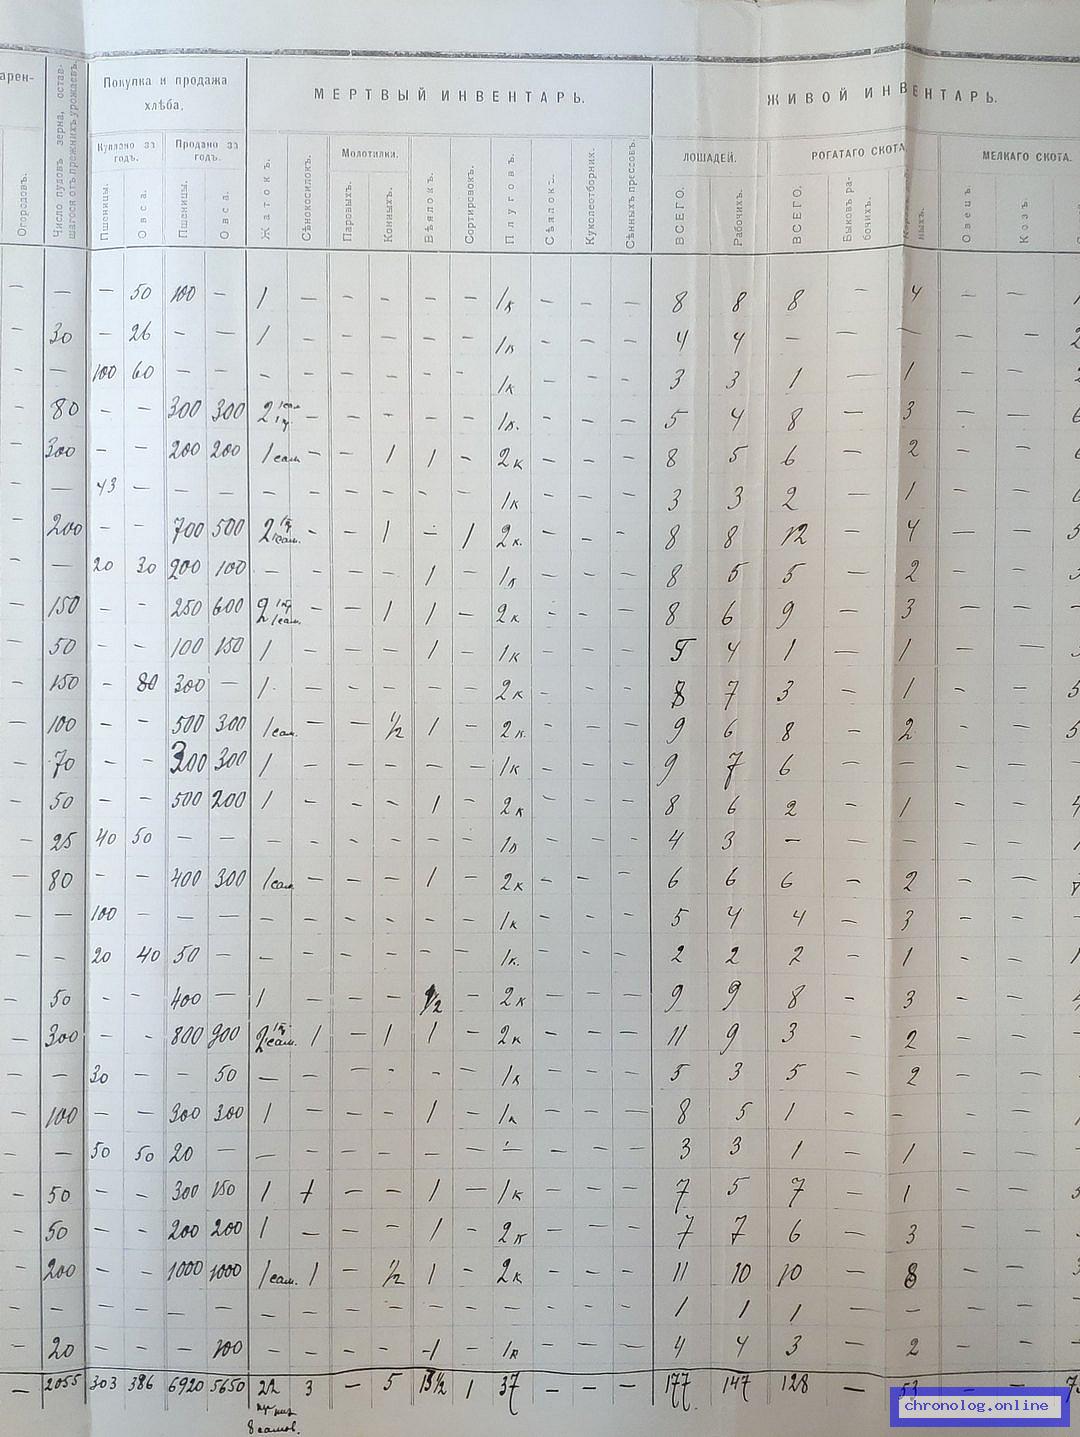 арен-
Огородовъ.
Число пудовъ зерна, остав-
шагося отъ прежнихъ урожаевъ.
Покупка и продажа
хлѣба.
Куплено за
годъ.
Продано за
годъ.
Пшеницы.
Овса.
Пшеницы.
Овса.
МЕРТВЫЙ ИНВЕНТАРЬ.
Жатокъ.
Сѣнокосилокъ.
Молотилки.
Паровыхъ.
Конныхъ.
Вѣялокъ.
Сортировокъ.
Плуговъ.
Сѣялокъ.
Куколеотборник.
Сѣнныхъ прессовъ.
ЖИВОЙ ИНВЕНТАРЬ.
ЛОШАДЕЙ.
ВСЕГО.
Рабочихъ.
РОГАТАГО СКОТА
ВСЕГО.
Быковъ ра-
бочихъ.
ныхъ.
МЕЛКАГО СКОТА.
Овецъ.
Козъ.
— — — 50 100 — 1 — — — — — 1к — — — 8 8 8 — 4 — — 1
— 30 — 26 — — 1 — — — — — 1л — — — 4 4 — — — — — 2
— — 100 60 — — — — — — — — 1к — — — 3 3 1 — 1 — —
— 80 — — 300 300 2 — — — — — 1л. — — — 5 4 8 — 3 — — 6
— 300 — — 200 200 1 сам — — 1 1 — 2к — — — 8 5 6 — 2 — — 6
— — 43 — — — — — — — — — 1к — — — 3 3 2 — 1 — —
— 200 — — 700 500 2 1сам. — — 1 — 1 2к. — — — 8 8 12 — 4 — — 5
— — 20 30 200 100 — — — — 1 — 1л — — — 8 5 5 — 2 — —
— 150 — — 250 600 2 1сам. — — 1 1 — 2к — — — 8 6 9 — 3 — —
— 50 — — 100 150 1 — — — 1 — 1к — — — 5 4 1 — 1 — —
— 150 — 80 300 — 1 — — — — — 2к — — — 8 7 3 — 1 — — 5
— 100 — — 500 300 1сам. — — 1/2 1 — 2к. — — — 9 6 8 — 2 — — 5
— 70 — — 300 300 1 — — — — — 1к — — — 9 7 6 — — — —
— 50 — — 500 200 1 — — — 1 — 2к — — — 8 6 2 — 1 — — 4
— 25 40 50 — — — — — — — — 1л — — — 4 3 — — — — — 1
— 80 — — 400 300 1сам — — — 1 — 2к — — — 6 6 6 — 2 — —
— — 100 — — — — — — — — — 1к — — — 5 4 4 — 3 — —
— — 20 40 50 — — — — — — — 1к. — — — 2 2 2 — 1 — — 1
— 50 — — 400 — 1 — — — 1/2 — 2к — — — 9 9 8 — 3 — — 4
— 300 — — 800 900 2 1сам. 1 — 1 1 — 2к — — — 11 9 3 — 2 — —
— — 30 — — 50 — — — — — — 1к — — — 5 3 5 — 2 — —
— 100 — — 300 300 1 — — — 1 — 1к — — — 8 5 1 — — — — 1
— — 50 50 20 — — — — — — — — — — — 3 3 1 — 1 — —
— 50 — — 300 150 1 1 — — 1 — 1к — — — 7 5 7 — 1 — — 5
— 50 — — 200 200 1 — — — 1 — 2к — — — 7 7 6 — 3 — —
— 200 — — 1000 1000 1сам. 1 — 1/2 1 — 2к — — — 11 10 10 — 8 — — 3
— — — — — — — — — — — — — — — — 1 1 1 — — — —
— 20 — — — 100 — — — — 1 — 1к — — — 4 4 3 — 2 — —
— 2055 303 386 6920 5650 22 3 — 5 13½ 1 37 — — — 177 147 128 — 53 — — 7
8 самов.
chronolog.online